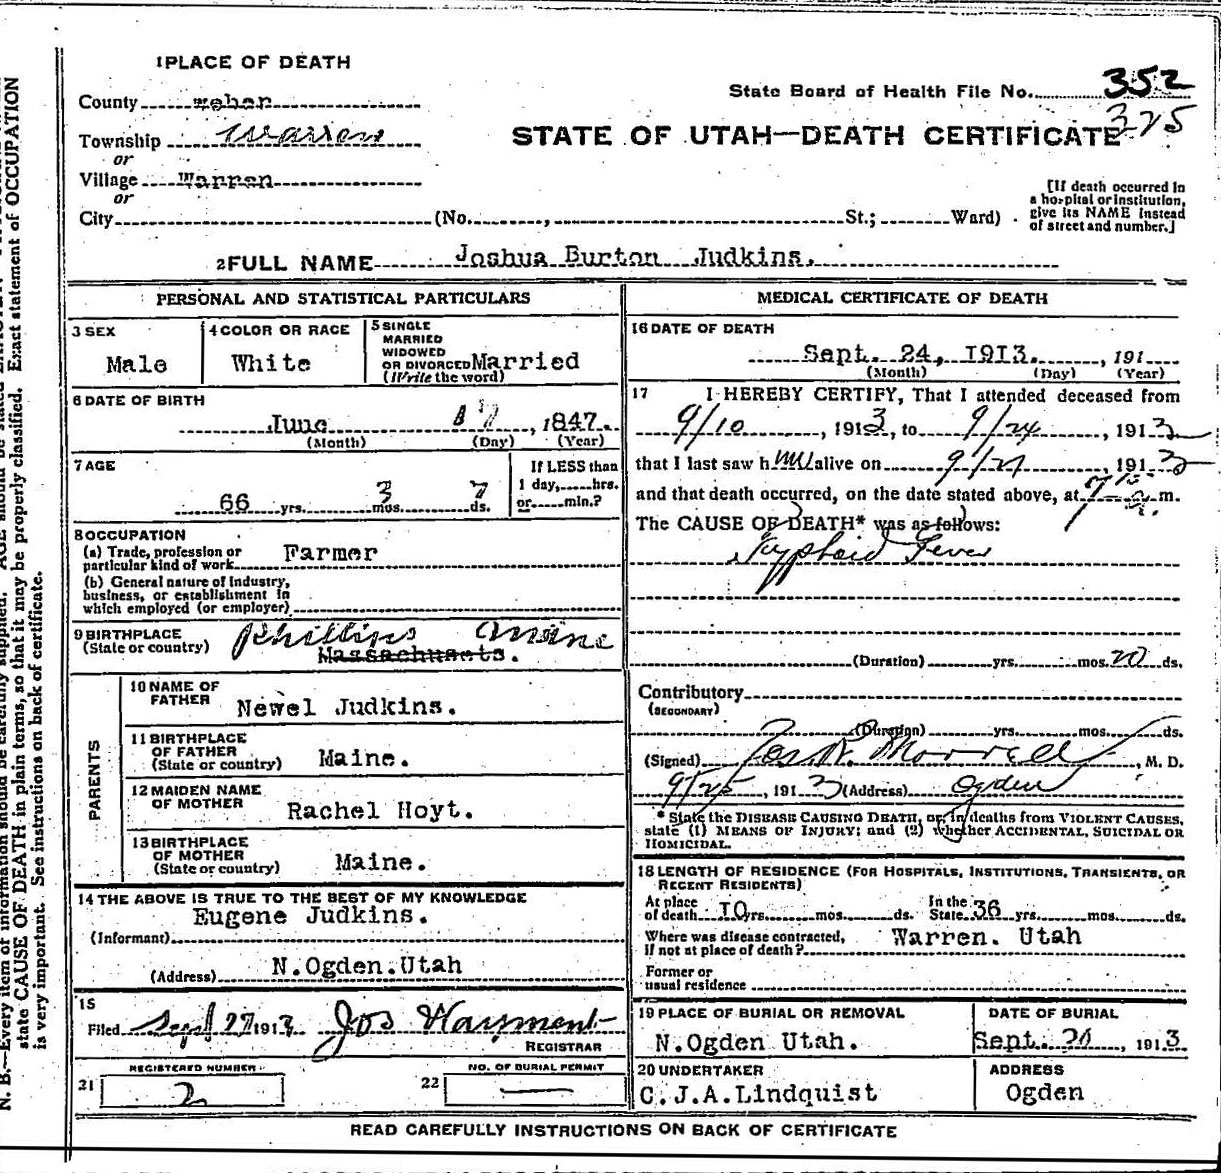 1 PLACE OF DEATH
County Weber
State Board of Health File No. 352
325
Township Warren
STATE OF UTAH—DEATH CERTIFICATE
or
Village Warren
or
City (No. , St.; Ward)
[If death occurred in
a hospital or institution,
give its NAME instead
of street and number.]
2 FULL NAME Joshua Burton Judkins.
PERSONAL AND STATISTICAL PARTICULARS
3 SEX
Male
4 COLOR OR RACE
White
5 SINGLE
MARRIED
WIDOWED
OR DIVORCED Married
(Write the word)
6 DATE OF BIRTH
June 17, 1847.
(Month) (Day) (Year)
7 AGE
66 yrs. 3 mos. 7 ds.
If LESS than
1 day, hrs.
or min.?
8 OCCUPATION
(a) Trade, profession or
particular kind of work Farmer
(b) General nature of industry,
business, or establishment in
which employed (or employer)
9 BIRTHPLACE
(State or country)
Phillips Maine
Massachusets.
PARENTS
10 NAME OF
FATHER
Newel Judkins.
11 BIRTHPLACE
OF FATHER
(State or country) Maine.
12 MAIDEN NAME
OF MOTHER
Rachel Hoyt.
13 BIRTHPLACE
OF MOTHER
(State or country) Maine.
14 THE ABOVE IS TRUE TO THE BEST OF MY KNOWLEDGE
Eugene Judkins.
(Informant)
(Address) N.Ogden.Utah
15
Filed Sept 27 1913 Jos Wayment
REGISTRAR
REGISTERED NUMBER
21 2
NO. OF BURIAL PERMIT
22 —
MEDICAL CERTIFICATE OF DEATH
16 DATE OF DEATH
Sept. 24, 1913. , 191
(Month) (Day) (Year)
17 I HEREBY CERTIFY, That I attended deceased from
9/10 , 1913, to 9/24 , 1913
that I last saw him alive on 9/21 , 1913
and that death occurred, on the date stated above, at 7 15 a. m.
The CAUSE OF DEATH* was as follows:
Typhoid Fever
(Duration) yrs. mos. 20 ds.
Contributory
(SECONDARY)
(Duration) yrs. mos. ds.
(Signed) Jos. R. Morrell , M. D.
9/25 , 1913 (Address) Ogden
* State the DISEASE CAUSING DEATH, or, in deaths from VIOLENT CAUSES,
state (1) MEANS OF INJURY; and (2) whether ACCIDENTAL, SUICIDAL OR
HOMICIDAL.
18 LENGTH OF RESIDENCE (FOR HOSPITALS, INSTITUTIONS, TRANSIENTS, OR
RECENT RESIDENTS)
At place
of death 10 yrs. mos. ds.
In the
State 36 yrs. mos. ds.
Where was disease contracted,
if not at place of death? Warren. Utah
Former or
usual residence
19 PLACE OF BURIAL OR REMOVAL
N.Ogden Utah.
DATE OF BURIAL
Sept. , 1913
20 UNDERTAKER
C.J.A.Lindquist
ADDRESS
Ogden
READ CAREFULLY INSTRUCTIONS ON BACK OF CERTIFICATE
N. B.—Every item of information should be carefully supplied. AGE should be stated
state CAUSE OF DEATH in plain terms, so that it may be properly classified. Exact statement of OCCUPATION
is very important. See instructions on back of certificate.